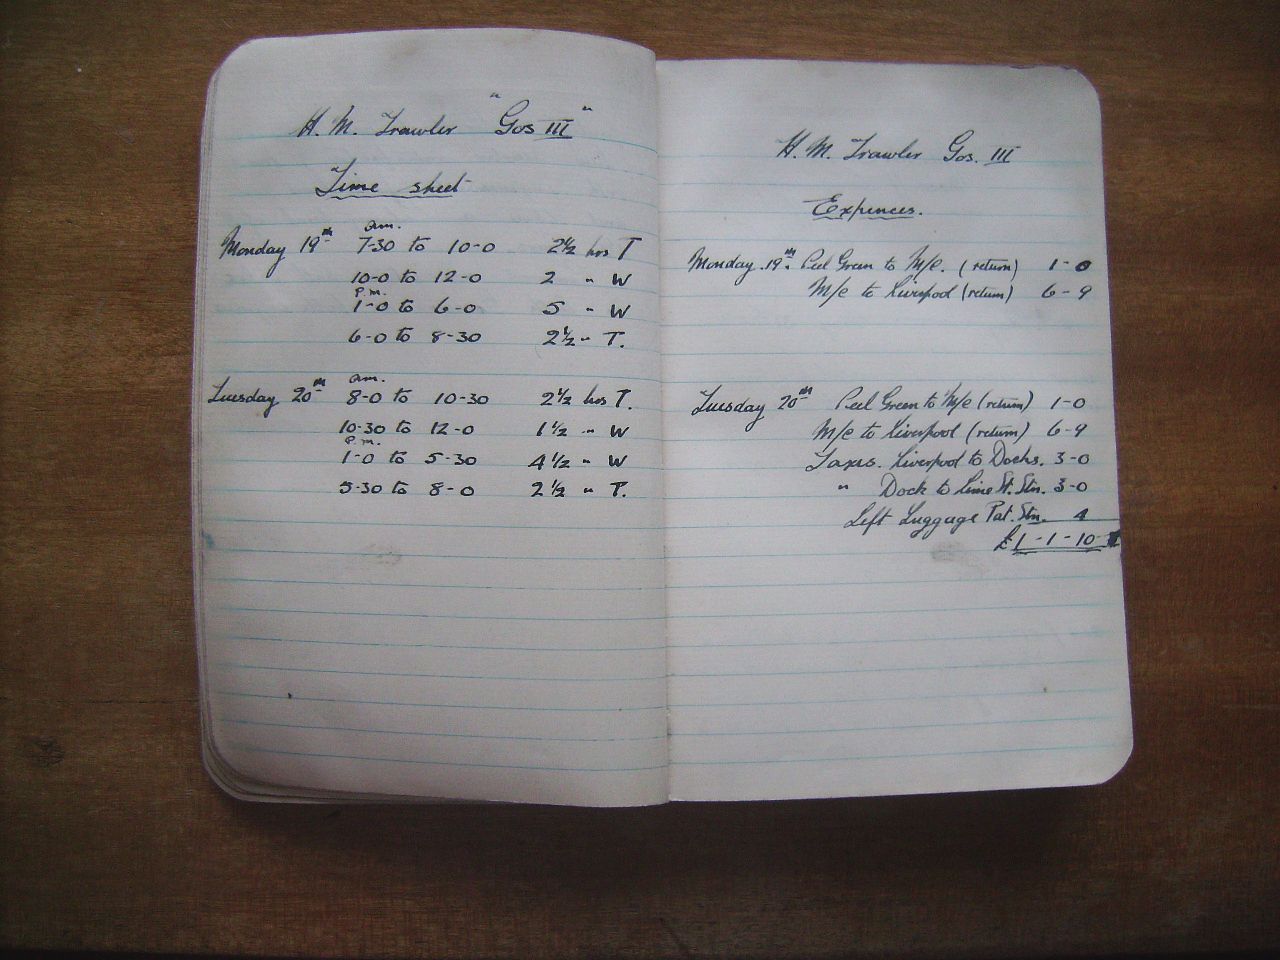 H. M. Trawler "Gos III"
Time sheet
am.
Monday 19th 7-30 to 10-0 2½ hrs T
10-0 to 12-0 2 " W
p.m.
1-0 to 6-0 5 " W
6-0 to 8-30 2½ " T.
am.
Tuesday 20th 8-0 to 10-30 2½ hrs T.
10-30 to 12-0 1½ " W
p.m.
1-0 to 5-30 4½ " W
5-30 to 8-0 2½ " T.
H. M. Trawler Gos. III
Expences.
Monday 19th. Peel Green to M/c. (return) 1-0
M/c to Liverpool (return) 6-9
Tuesday 20th Peel Green to M/c (return) 1-0
M/c to Liverpool (return) 6-9
Taxis. Liverpool to Docks. 3-0
" Dock to Lime St. Stn. 3-0
Left Luggage Pat. Stn. 4
£1-1-10